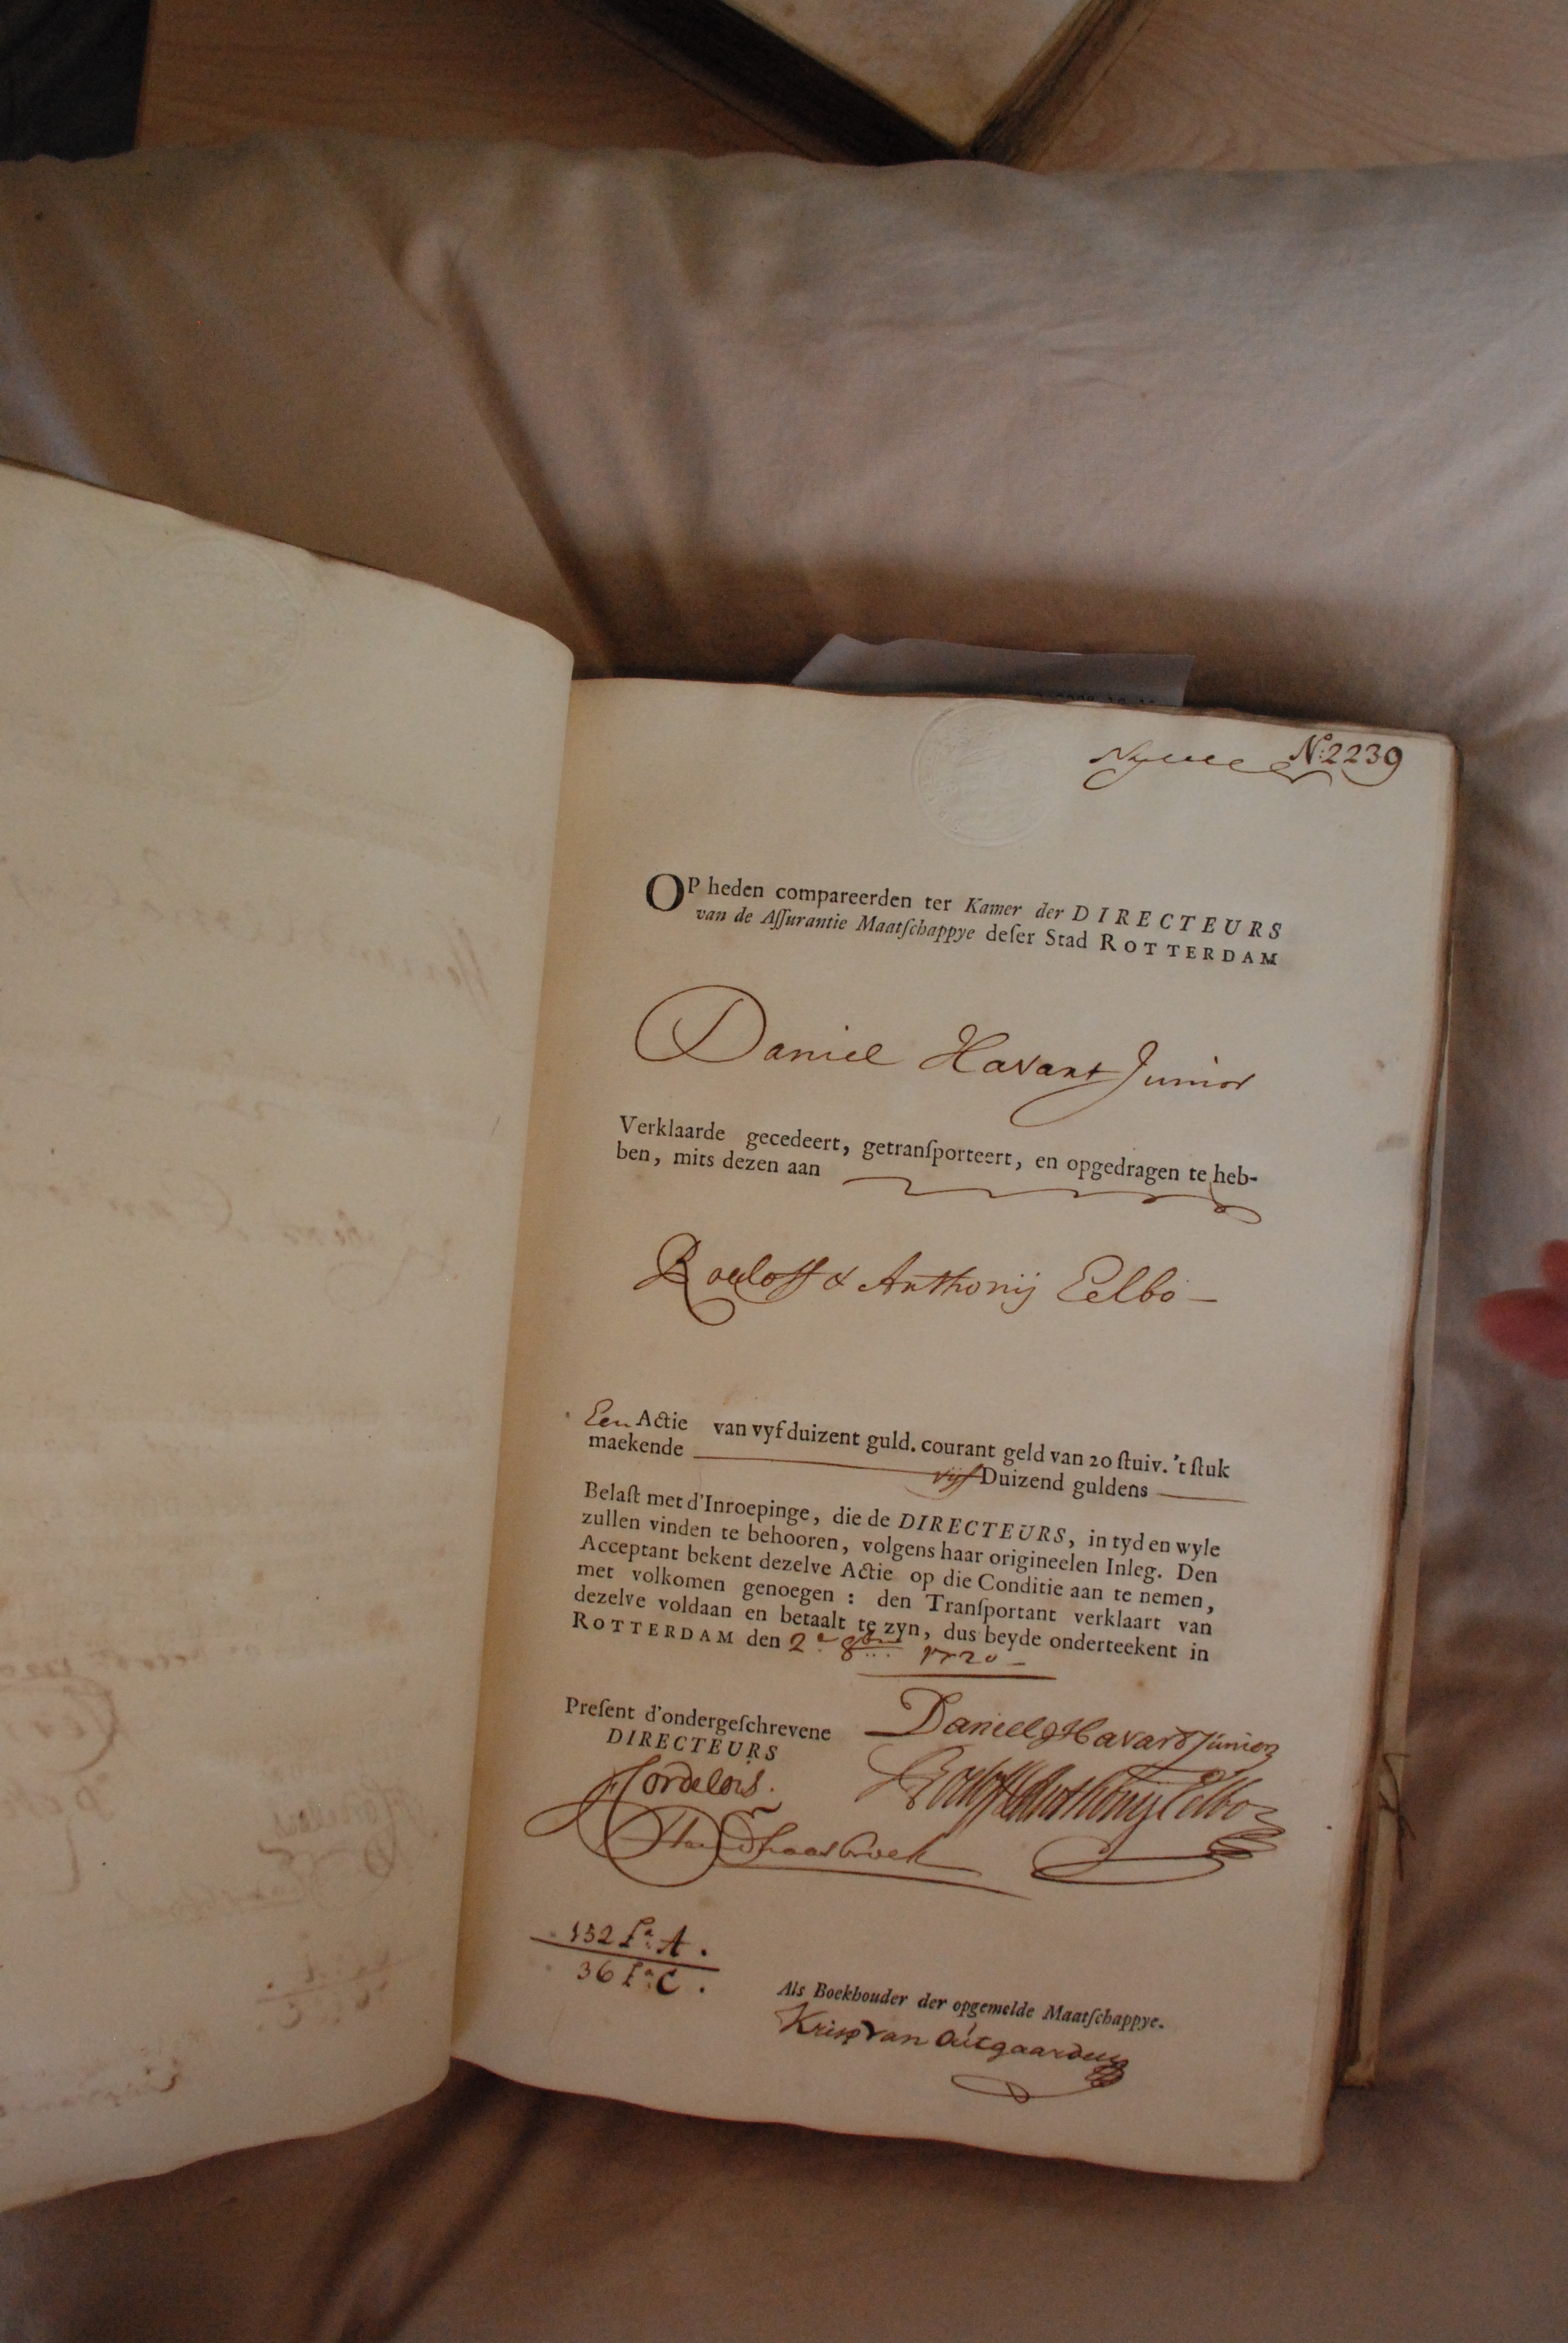 N:2239
OP heden compareerden ter Kamer der DIRECTEURS
van de Aſſurantie Maatſchappye deſer Stad ROTTERDAM
Daniel Havart Junior
Verklaarde gecedeert, getranſporteert, en opgedragen te heb-
ben, mits dezen aan
Roeloff & Anthonij Eelbo
Een Actie van vyf duizent guld. courant geld van 20 ſtuiv. 't ſtuk
maekende vijf Duizend guldens
Belaſt met d'Inroepinge, die de DIRECTEURS, in tyd en wyle
zullen vinden te behooren, volgens haar origineelen Inleg. Den
Acceptant bekent dezelve Actie op die Conditie aan te nemen,
met volkomen genoegen : den Tranſportant verklaart van
dezelve voldaan en betaalt te zyn, dus beyde onderteekent in
ROTTERDAM den 2e 8br 1720
Preſent d'ondergeſchrevene
DIRECTEURS
Daniel Havart Junior
Roeloff & Anthonij Eelbo
132 f:a A.
36 f:a C.
Als Boekhouder der opgemelde Maatſchappye.
Krisp van Outgaarden